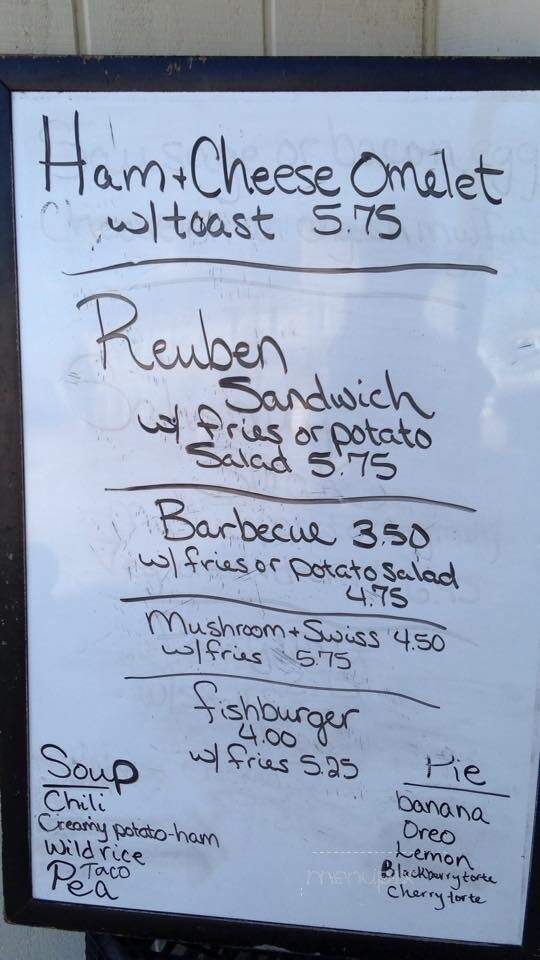 Ham + Cheese Omelet
w/ toast 5.75
Reuben
Sandwich
w/ fries or potato
Salad 5.75
Barbecue 3.50
w/ fries or potato Salad
4.75
Mushroom + Swiss 4.50
w/ fries 5.75
fishburger
4.00
w/ fries 5.25
Soup
Chili
Creamy potato-ham
Wild rice
Taco
Pea
Pie
banana
Oreo
Lemon
Blackberry torte
Cherry torte